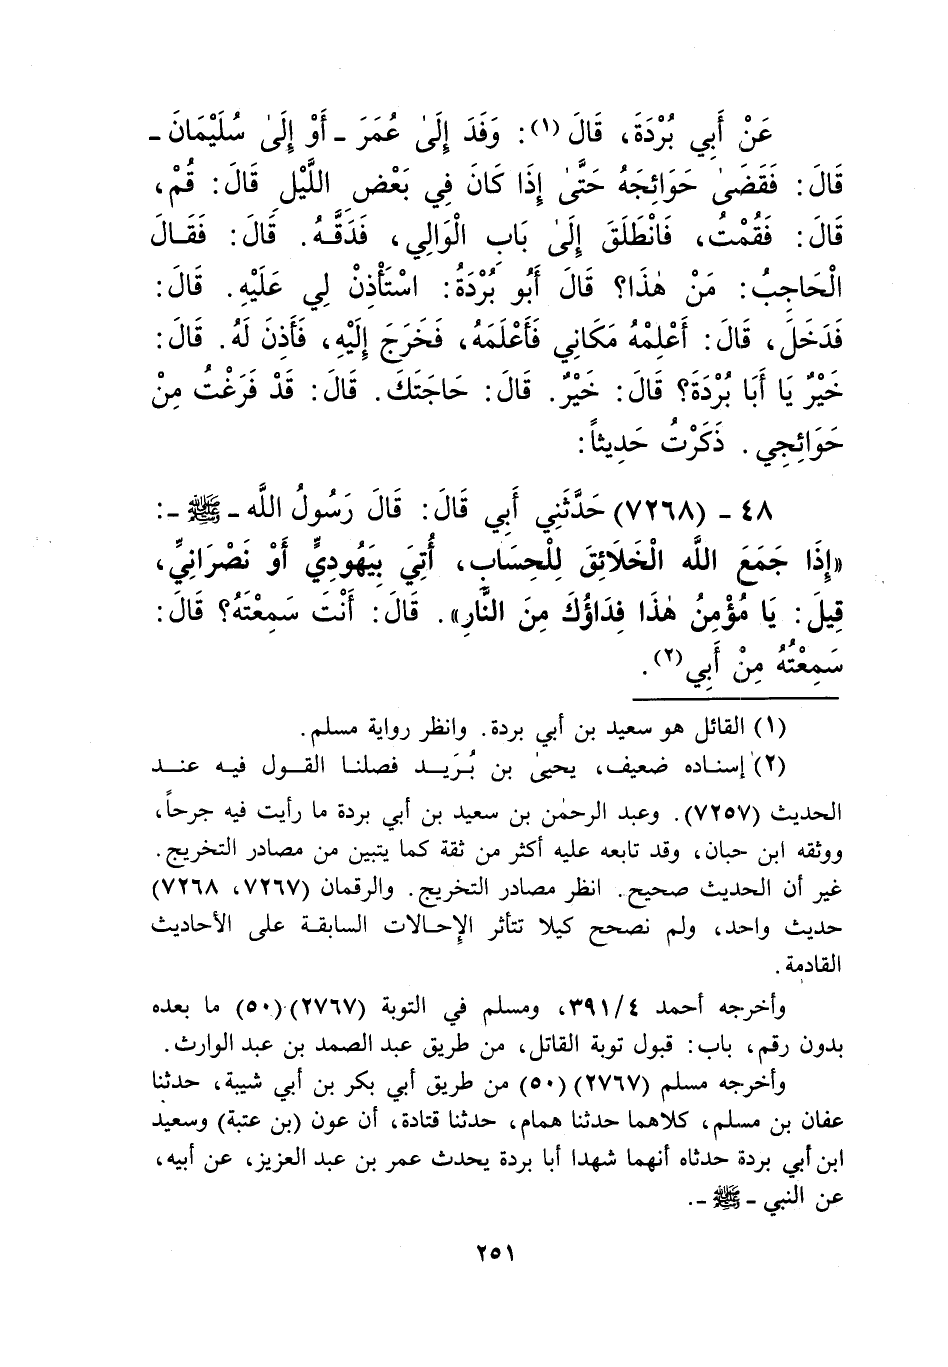 عَنْ أَبِي بُرْدَةَ، قَالَ (١): وَفَدَ إِلَىٰ عُمَرَ ـ أَوْ إِلَىٰ سُلَيْمَانَ ـ
قَالَ: فَقَضَىٰ حَوَائِجَهُ حَتَّىٰ إِذَا كَانَ فِي بَعْضِ اللَّيْلِ قَالَ: قُمْ،
قَالَ: فَقُمْتُ، فَانْطَلَقَ إِلَىٰ بَابِ الْوَالِي، فَدَقَّهُ. قَالَ: فَقَالَ
الْحَاجِبُ: مَنْ هٰذَا؟ قَالَ أَبُو بُرْدَةُ: اسْتَأْذِنْ لِي عَلَيْهِ. قَالَ:
فَدَخَلَ، قَالَ: أَعْلِمْهُ مَكَانِي فَأَعْلَمَهُ، فَخَرَجَ إِلَيْهِ، فَأَذِنَ لَهُ. قَالَ:
خَيْرٌ يَا أَبَا بُرْدَةَ؟ قَالَ: خَيْرٌ. قَالَ: حَاجَتَكَ. قَالَ: قَدْ فَرَغْتُ مِنْ
حَوَائِجِي. ذَكَرْتُ حَدِيثاً:
٤٨ ـ (٧٢٦٨) حَدَّثَنِي أَبِي قَالَ: قَالَ رَسُولُ اللَّه ـ ﷺ ـ:
«إِذَا جَمَعَ اللَّه الْخَلَائِقَ لِلْحِسَابِ، أُتِيَ بِيَهُودِيٍّ أَوْ نَصْرَانِيٍّ،
قِيلَ: يَا مُؤْمِنُ هٰذَا فِدَاؤُكَ مِنَ النَّارِ». قَالَ: أَنْتَ سَمِعْتَهُ؟ قَالَ:
سَمِعْتُهُ مِنْ أَبِي (٢).
(١) القائل هو سعيد بن أبي بردة. وانظر رواية مسلم.
(٢) إسناده ضعيف، يحيىٰ بن بُرَيد فصلنا القول فيه عند
الحديث (٧٢٥٧). وعبد الرحمٰن بن سعيد بن أبي بردة ما رأيت فيه جرحاً،
ووثقه ابن حبان، وقد تابعه عليه أكثر من ثقة كما يتبين من مصادر التخريج.
غير أن الحديث صحيح. انظر مصادر التخريج. والرقمان (٧٢٦٧، ٧٢٦٨)
حديث واحد، ولم نصحح كيلا تتأثر الإحالات السابقة على الأحاديث
القادمة.
وأخرجه أحمد ٣٩١/٤، ومسلم في التوبة (٢٧٦٧) (٥٠) ما بعده
بدون رقم، باب: قبول توبة القاتل، من طريق عبد الصمد بن عبد الوارث.
وأخرجه مسلم (٢٧٦٧) (٥٠) من طريق أبي بكر بن أبي شيبة، حدثنا
عفان بن مسلم، كلاهما حدثنا همام، حدثنا قتادة، أن عون (بن عتبة) وسعيد
ابن أبي بردة حدثاه أنهما شهدا أبا بردة يحدث عمر بن عبد العزيز، عن أبيه،
عن النبي ـ ﷺ ـ.
٢٥١